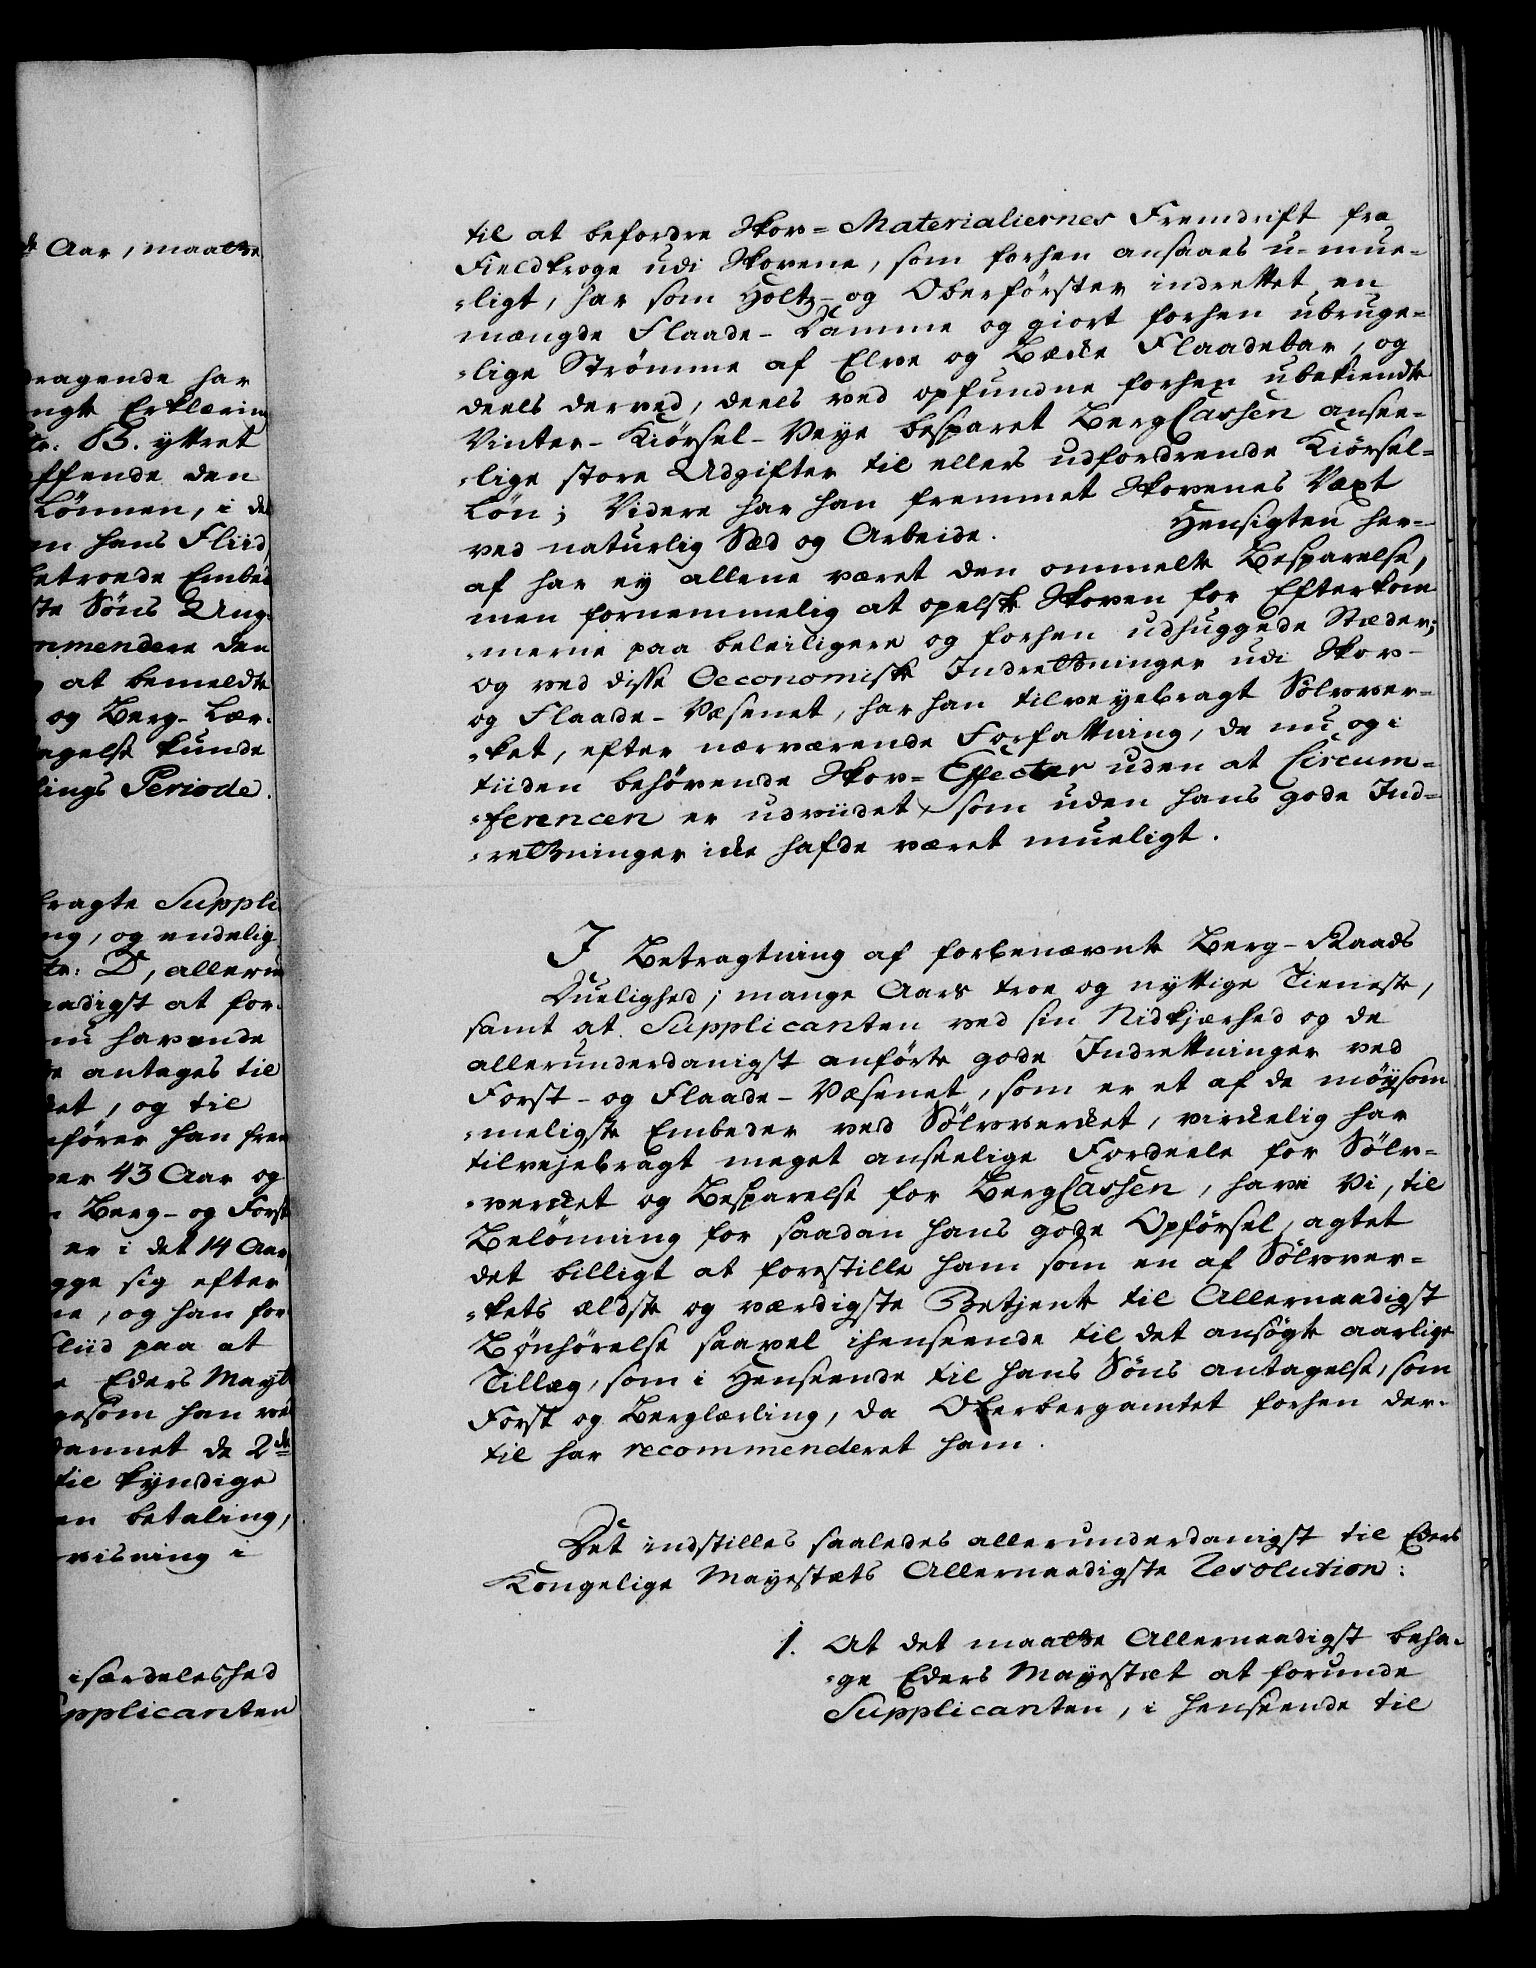 de Aar, maatte
dragende har
Erklæring
B. yttret
den
Lønnen, i
hans Fliid
betroede
Søns
den
at bemeldte
og Berg-Lær-
kunde
Periode.
Suppli
og endelig
D, allerun
at for-
havende
antages til
og til
han
43 Aar og
Berg- og Forst
er i det 14 Aar
sig efter
og han for
Fliid paa at
Eders Mayt
han
de 2de
til kyndige
betaling,
i
isærdeleshed
Supplicanten
til at befordre Skov-Materialiernes Fremdrift fra
Fieldkroge udi Skovene, som forhen ansaaes u-mue-
-ligt, har som Holtz- og Oberförster indrettet en
mængde Flaade-Damme og giort forhen ubruge-
-lige Strømme af Elve og Bække Flaadebar, og
deels derved, deels ved opfundne forhen ubekiendte
Vinter-Kiørsel-Veye besparet BergCassen ansee-
-lige store Udgifter til ellers udfordrende Kiørsel-
Løn; Videre har han fremmet Skovenes Væxt
ved naturlig Sæd og Arbeide. Hensigten her-
af har ey allene været den ommelte Besparelse,
men fornemmelig at opelske Skoven for Efterkom
-merne paa beleiligere og forhen udhuggede Stæder;
og ved disse Oeconomiske Indretninger udi Skov-
og Flaade-Væsenet, har han tilveyebragt Sølvver-
-ket, efter nærværende Forfattning, de nu og i
tiiden behøvende Skov-Effecter uden at Circum-
-ferencen er udviidet, som uden hans gode Ind-
-retninger icke hafde været mueligt.
I Betragtning af forbenævnte Berg-Raads
Duelighed, mange Aars troe og nyttige Tieneste,
samt at Supplicanten ved sin Nidkjærhed og de
allerunderdanigst anførte gode Indrettninger ved
Forst- og Flaade-Væsenet, som er et af de møysom
-meligste Embeder ved Sølvverket, virkelig har
tilvejebragt meget anseelige Fordeele for Sølv-
-verket og Besparelse for BergCassen, have Vi, til
Belønning for saadan hans gode Opførsel, agtet
det billigt at forestille ham som en af Sølvver-
-kets ældste og værdigste Betjente til Allernaadigst
Bønhørelse saavel ihenseende til det ansøgte aarlige
Tillæg, som i Henseende til hans Søns antagelse, som
Forst og Berglærling, da Oberbergamtet forhen der-
til har recommenderet ham.
Det indstilles saaledes allerunderdanigst til Eders
Kongelige Mayestæts Allernaadigste Resolution:
1. At det maatte Allernaadigst beha-
-ge Eders Mayestæt at forunde
Supplicanten, i henseende til